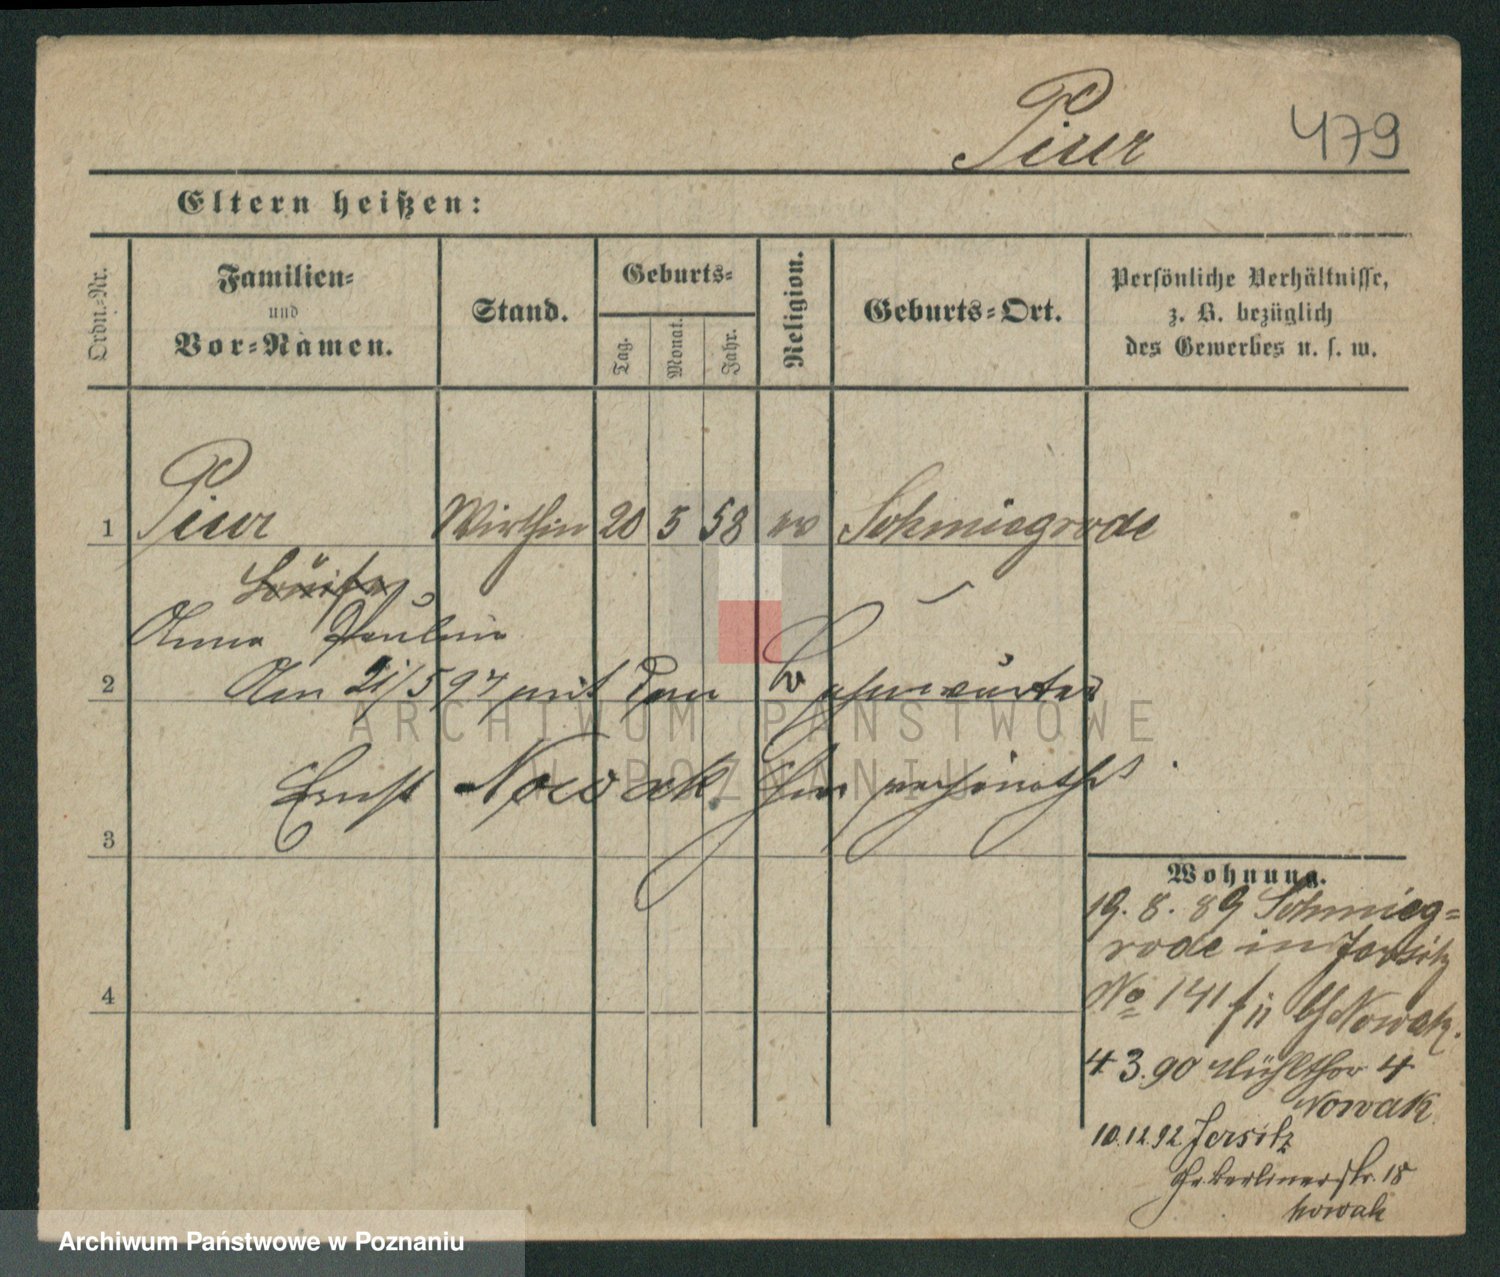 Pieur
479
Eltern heißen:
Ordn.-Nr.
Familien-
und
Vor-Namen.
Stand.
Geburts-
Tag.
Monat.
Jahr.
Religion.
Geburts-Ort.
Persönliche Verhältnisse,
z. B. bezüglich
des Gewerbes u. s. w.
1 Pieur Wirthin 20 5 58 ev Schmiegrode
Louise
Anna Pauline
2 Am 21/5 97 mit dem
Ernst Nowak hier verheirathet.
3
4
Wohnung.
19. 8. 89 Schmieg=
rode in Jersitz
No 141 f ii Nowak.
4 3.90 Mühlthor 4
Nowak
10.12.92 Jersitz
Gr. Berlinerstr. 18
Nowak
ARCHIWUM PAŃSTWOWE
W POZNANIU
Archiwum Państwowe w Poznaniu